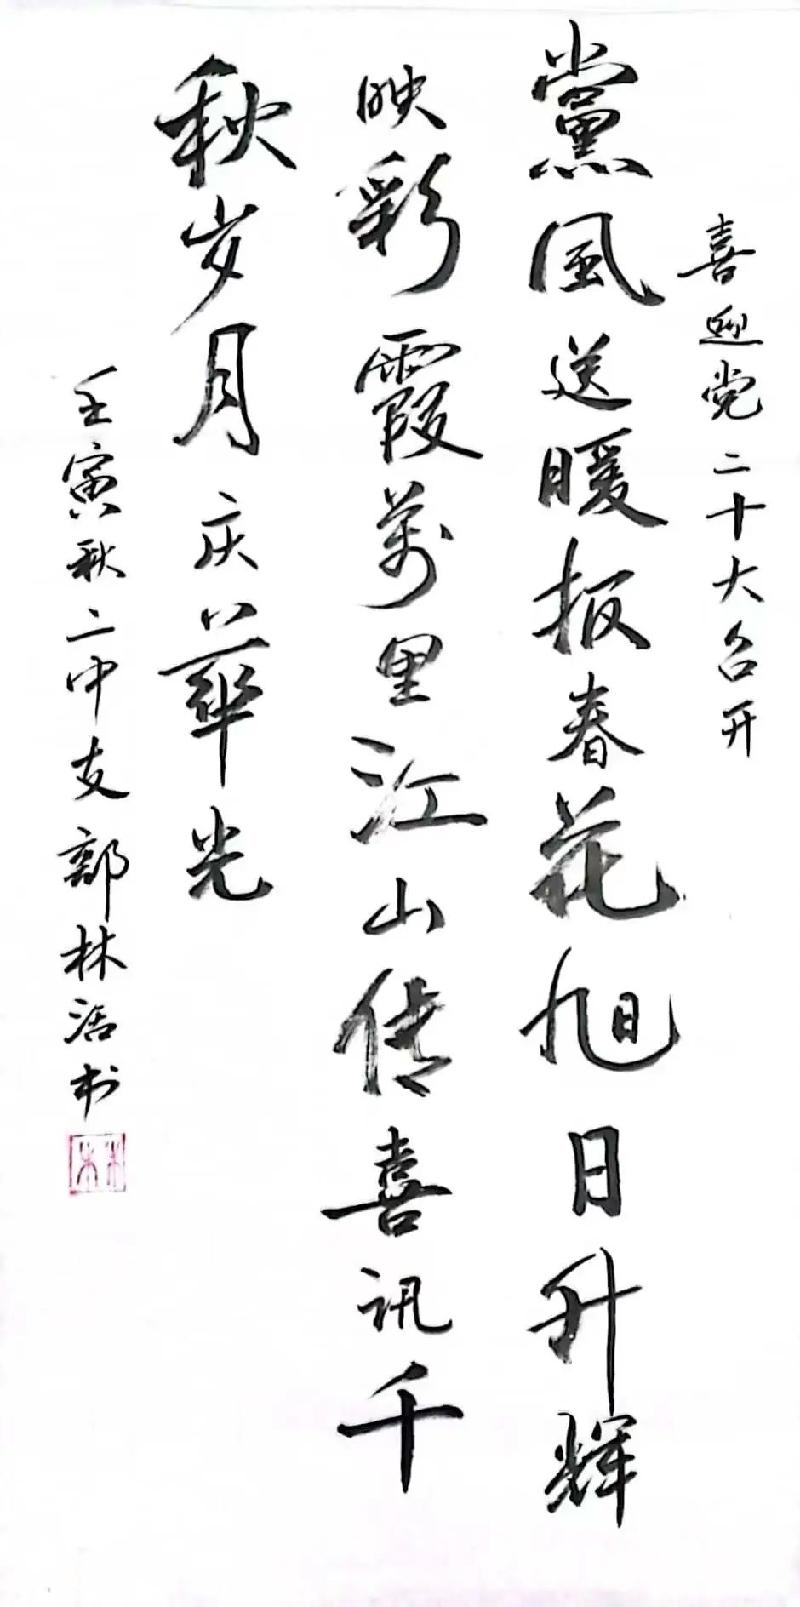 喜迎党二十大召开
黨風送暖报春花旭日升輝
映彩霞萬里江山传喜讯千
秋岁月庆華光
壬寅秋二中支鄭林活书